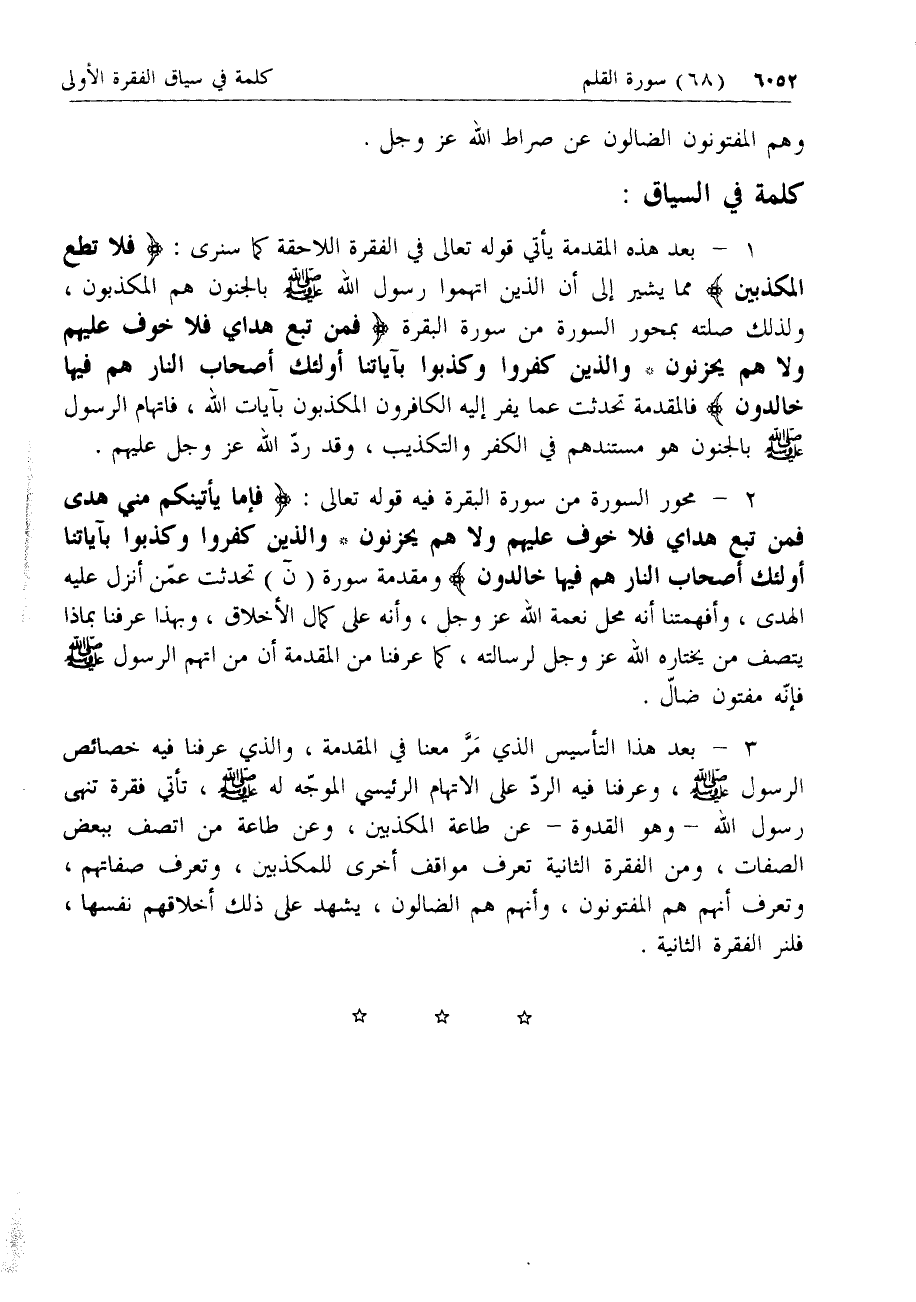 ٦٠٥٢ (٦٨) سورة القلم كلمة في سياق الفقرة الأولى
وهم المفتونون الضالون عن صراط الله عز وجل .
كلمة في السياق :
١ – بعد هذه المقدمة يأتي قوله تعالى في الفقرة اللاحقة كما سنرى : ﴿ فلا تطع
المكذبين ﴾ مما يشير إلى أن الذين اتهموا رسول الله ﷺ بالجنون هم المكذبون ،
ولذلك صلته بمحور السورة من سورة البقرة ﴿ فمن تبع هداي فلا خوف عليهم
ولا هم يحزنون * والذين كفروا وكذبوا بآياتنا أولئك أصحاب النار هم فيها
خالدون ﴾ فالمقدمة تحدثت عما يفر إليه الكافرون المكذبون بآيات الله ، فاتهام الرسول
ﷺ بالجنون هو مستندهم في الكفر والتكذيب ، وقد ردّ الله عز وجل عليهم .
٢ – محور السورة من سورة البقرة فيه قوله تعالى : ﴿ فإما يأتينكم مني هدى
فمن تبع هداي فلا خوف عليهم ولا هم يحزنون * والذين كفروا وكذبوا بآياتنا
أولئك أصحاب النار هم فيها خالدون ﴾ ومقدمة سورة ( نٓ ) تحدثت عمّن أنزل عليه
الهدى ، وأفهمتنا أنه محل نعمة الله عز وجل ، وأنه على كمال الأخلاق ، وبهذا عرفنا بماذا
يتصف من يختاره الله عز وجل لرسالته ، كما عرفنا من المقدمة أن من اتهم الرسول ﷺ
فإنّه مفتون ضالّ .
٣ – بعد هذا التأسيس الذي مَرَّ معنا في المقدمة ، والذي عرفنا فيه خصائص
الرسول ﷺ ، وعرفنا فيه الردّ على الاتهام الرئيسي الموجّه له ﷺ ، تأتي فقرة تنهى
رسول الله – وهو القدوة – عن طاعة المكذبين ، وعن طاعة من اتصف ببعض
الصفات ، ومن الفقرة الثانية تعرف مواقف أخرى للمكذبين ، وتعرف صفاتهم ،
وتعرف أنهم هم المفتونون ، وأنهم هم الضالون ، يشهد على ذلك أخلاقهم نفسها ،
فلنر الفقرة الثانية .
☆ ☆ ☆